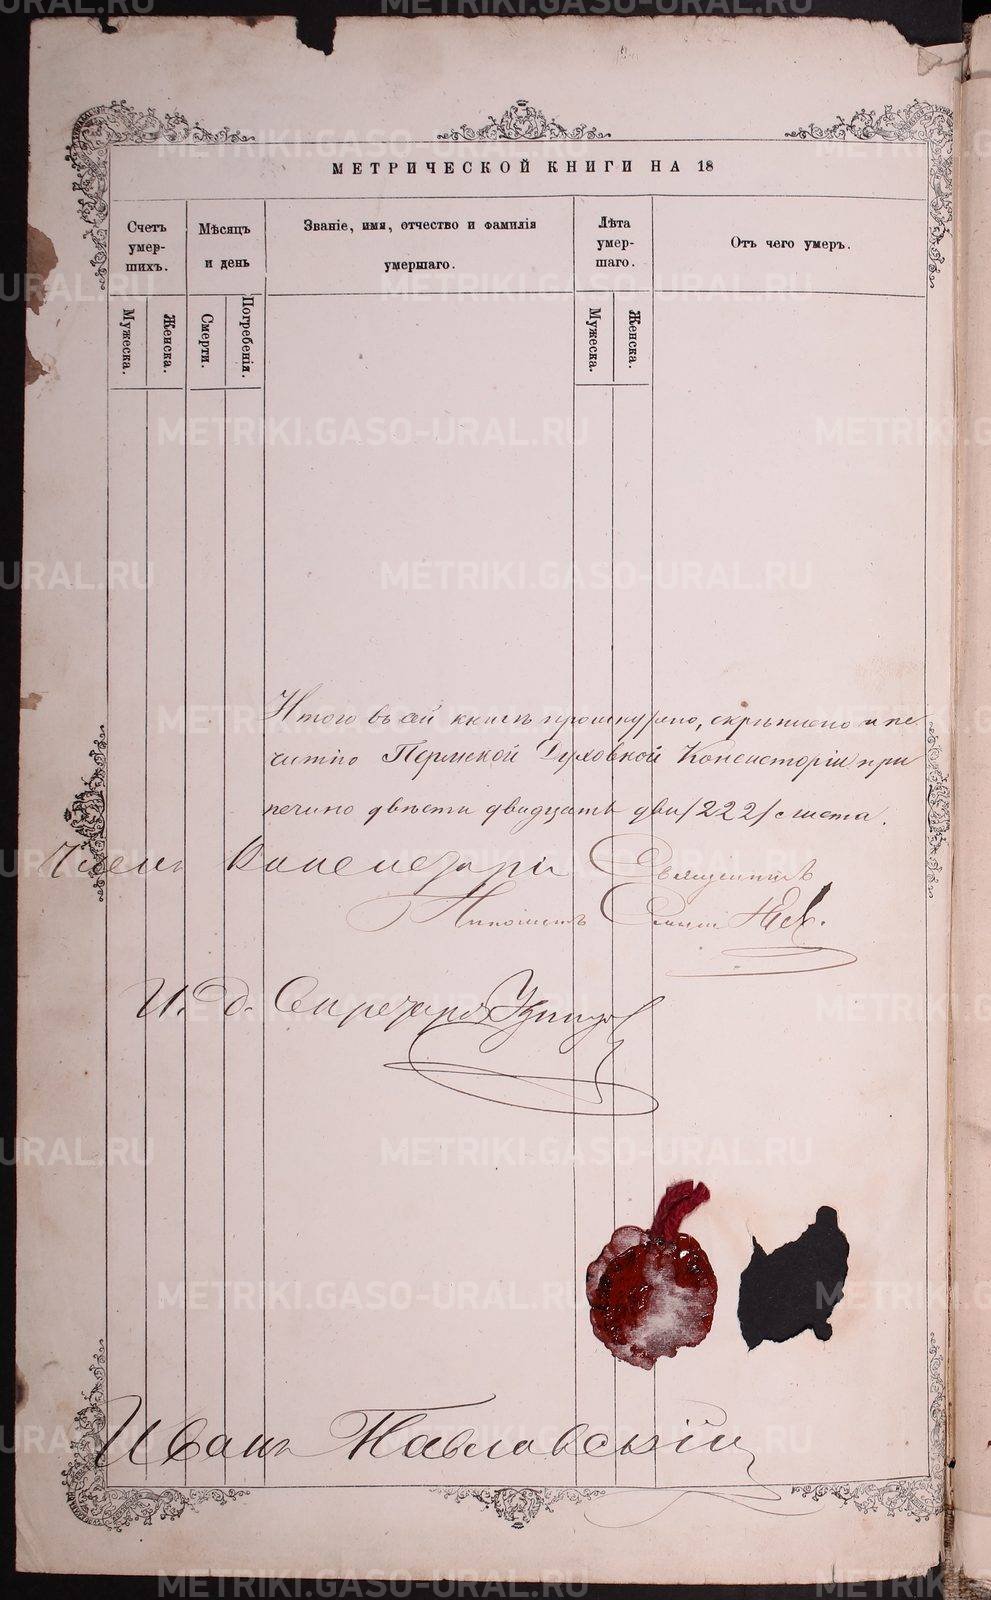 МЕТРИЧЕСКОЙ КНИГИ НА 18
Счетъ умер- шихъ.
Мѣсяцъ и день
Званіе, имя, отчество и фамилія умершаго.
Лѣта умер- шаго.
Отъ чего умеръ.
Мужеска.
Женска.
Смерти.
Погребенія.
Мужеска.
Женска.
Итого въ сей книгѣ прошнурено, скрѣплено и пе
чатію Пермской Духовной Консисторіи при
печ двѣсти двадцать два /222/ листа.
Членъ Консисторіи Священникъ
И. д. Секретаря
Иванъ Павловскій
METRIKI.GASO-URAL.RU